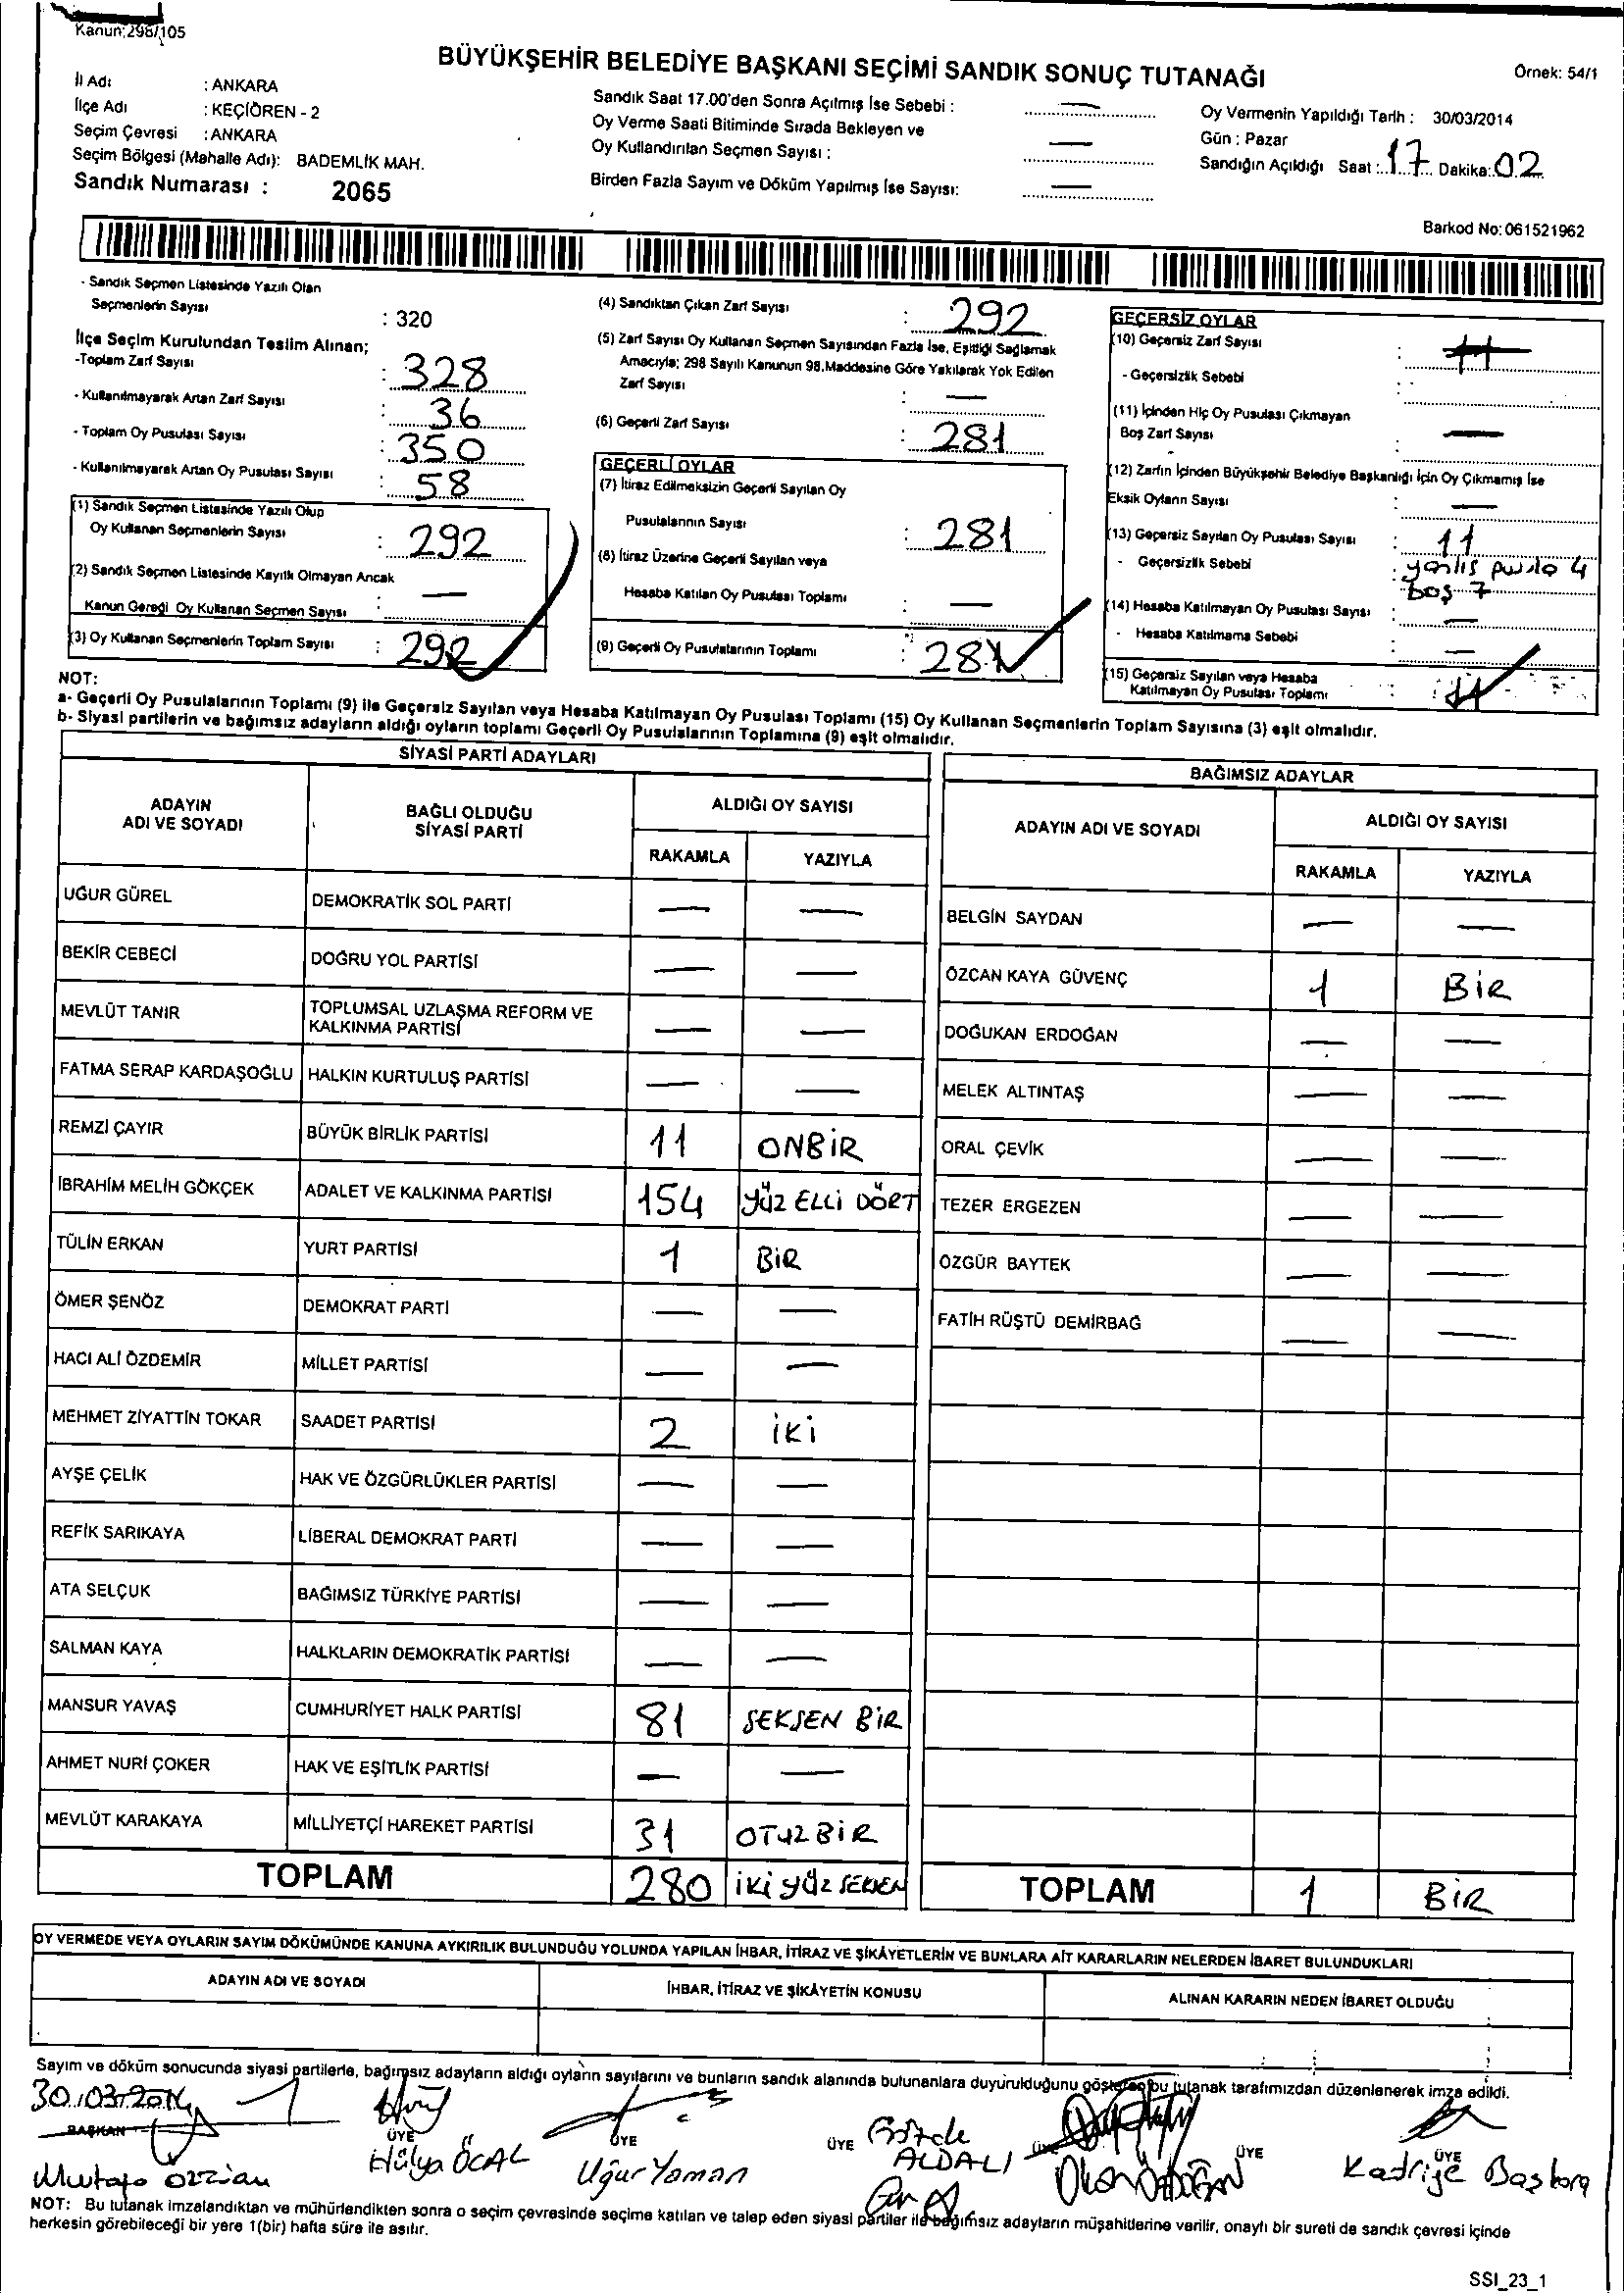 Kanun:298/105
BÜYÜKŞEHİR BELEDİYE BAŞKANI SEÇİMİ SANDIK SONUÇ TUTANAĞI
Örnek: 54/1
İl Adı : ANKARA
İlçe Adı : KEÇİÖREN - 2
Seçim Çevresi : ANKARA
Seçim Bölgesi (Mahalle Adı): BADEMLİK MAH.
Sandık Numarası : 2065
Sandık Saat 17.00'den Sonra Açılmış İse Sebebi : —
Oy Verme Saati Bitiminde Sırada Bekleyen ve
Oy Kullandırılan Seçmen Sayısı : —
Birden Fazla Sayım ve Döküm Yapılmış İse Sayısı: —
Oy Vermenin Yapıldığı Tarih : 30/03/2014
Gün : Pazar
Sandığın Açıldığı Saat : 17 Dakika: 02
Barkod No: 061521962
- Sandık Seçmen Listesinde Yazılı Olan
Seçmenlerin Sayısı : 320
İlçe Seçim Kurulundan Teslim Alınan;
-Toplam Zarf Sayısı : 328
- Kullanılmayarak Artan Zarf Sayısı : 36
- Toplam Oy Pusulası Sayısı : 350
- Kullanılmayarak Artan Oy Pusulası Sayısı : 58
(1) Sandık Seçmen Listesinde Yazılı Olup
Oy Kullanan Seçmenlerin Sayısı : 292
(2) Sandık Seçmen Listesinde Kayıtlı Olmayan Ancak
Kanun Gereği Oy Kullanan Seçmen Sayısı : —
(3) Oy Kullanan Seçmenlerin Toplam Sayısı : 292
(4) Sandıktan Çıkan Zarf Sayısı : 292
(5) Zarf Sayısı Oy Kullanan Seçmen Sayısından Fazla İse, Eşitliği Sağlamak
Amacıyla; 298 Sayılı Kanunun 98.Maddesine Göre Yakılarak Yok Edilen
Zarf Sayısı : —
(6) Geçerli Zarf Sayısı : 281
GEÇERLİ OYLAR
(7) İtiraz Edilmeksizin Geçerli Sayılan Oy
Pusulalarının Sayısı : 281
(8) İtiraz Üzerine Geçerli Sayılan veya
Hesaba Katılan Oy Pusulası Toplamı : —
(9) Geçerli Oy Pusulalarının Toplamı : 281
GEÇERSİZ OYLAR
(10) Geçersiz Zarf Sayısı : 11
- Geçersizlik Sebebi :
(11) İçinden Hiç Oy Pusulası Çıkmayan
Boş Zarf Sayısı : —
(12) Zarfın İçinden Büyükşehir Belediye Başkanlığı İçin Oy Çıkmamış İse
Eksik Oyların Sayısı : —
(13) Geçersiz Sayılan Oy Pusulası Sayısı : 11
- Geçersizlik Sebebi : yanlış pusula 4
boş 7
(14) Hesaba Katılmayan Oy Pusulası Sayısı : —
- Hesaba Katılmama Sebebi : —
(15) Geçersiz Sayılan veya Hesaba
Katılmayan Oy Pusulası Toplamı : 11
NOT:
a- Geçerli Oy Pusulalarının Toplamı (9) ile Geçersiz Sayılan veya Hesaba Katılmayan Oy Pusulası Toplamı (15) Oy Kullanan Seçmenlerin Toplam Sayısına (3) eşit olmalıdır.
b- Siyasi partilerin ve bağımsız adayların aldığı oyların toplamı Geçerli Oy Pusulalarının Toplamına (9) eşit olmalıdır.
SİYASİ PARTİ ADAYLARI
ADAYIN ADI VE SOYADI
BAĞLI OLDUĞU SİYASİ PARTİ
ALDIĞI OY SAYISI
RAKAMLA YAZIYLA
UĞUR GÜREL DEMOKRATİK SOL PARTİ — —
BEKİR CEBECİ DOĞRU YOL PARTİSİ — —
MEVLÜT TANIR TOPLUMSAL UZLAŞMA REFORM VE KALKINMA PARTİSİ — —
FATMA SERAP KARDAŞOĞLU HALKIN KURTULUŞ PARTİSİ — —
REMZİ ÇAYIR BÜYÜK BİRLİK PARTİSİ 11 ONBİR
İBRAHİM MELİH GÖKÇEK ADALET VE KALKINMA PARTİSİ 154 YÜZ ELLİ DÖRT
TÜLİN ERKAN YURT PARTİSİ 1 BİR
ÖMER ŞENÖZ DEMOKRAT PARTİ — —
HACI ALİ ÖZDEMİR MİLLET PARTİSİ — —
MEHMET ZİYATTİN TOKAR SAADET PARTİSİ 2 İKİ
AYŞE ÇELİK HAK VE ÖZGÜRLÜKLER PARTİSİ — —
REFİK SARIKAYA LİBERAL DEMOKRAT PARTİ — —
ATA SELÇUK BAĞIMSIZ TÜRKİYE PARTİSİ — —
SALMAN KAYA HALKLARIN DEMOKRATİK PARTİSİ — —
MANSUR YAVAŞ CUMHURİYET HALK PARTİSİ 81 SEKSEN BİR
AHMET NURİ ÇOKER HAK VE EŞİTLİK PARTİSİ — —
MEVLÜT KARAKAYA MİLLİYETÇİ HAREKET PARTİSİ 31 OTUZ BİR
TOPLAM 280 İKİ YÜZ SEKSEN
BAĞIMSIZ ADAYLAR
ADAYIN ADI VE SOYADI
ALDIĞI OY SAYISI
RAKAMLA YAZIYLA
BELGİN SAYDAN — —
ÖZCAN KAYA GÜVENÇ 1 BİR
DOĞUKAN ERDOĞAN — —
MELEK ALTINTAŞ — —
ORAL ÇEVİK — —
TEZER ERGEZEN — —
ÖZGÜR BAYTEK — —
FATİH RÜŞTÜ DEMİRBAĞ — —
TOPLAM 1 BİR
OY VERMEDE VEYA OYLARIN SAYIM DÖKÜMÜNDE KANUNA AYKIRILIK BULUNDUĞU YOLUNDA YAPILAN İHBAR, İTİRAZ VE ŞİKÂYETLERİN VE BUNLARA AİT KARARLARIN NELERDEN İBARET BULUNDUKLARI
ADAYIN ADI VE SOYADI İHBAR, İTİRAZ VE ŞİKÂYETİN KONUSU ALINAN KARARIN NEDEN İBARET OLDUĞU
Sayım ve döküm sonucunda siyasi partilerle, bağımsız adayların aldığı oyların sayılarını ve bunların sandık alanında bulunanlara duyurulduğunu gösteren bu tutanak tarafımızdan düzenlenerek imza edildi.
30.03.2014
BAŞKAN ÜYE ÜYE ÜYE ÜYE ÜYE ÜYE
Hülya ÖCAL
Uğur Yaman
Gözde ALDALI
Kadriye
NOT: Bu tutanak imzalandıktan ve mühürlendikten sonra o seçim çevresinde seçime katılan ve talep eden siyasi partiler ile bağımsız adayların müşahitlerine verilir, onaylı bir sureti de sandık çevresi içinde
herkesin görebileceği bir yere 1(bir) hafta süre ile asılır.
SSI_23_1